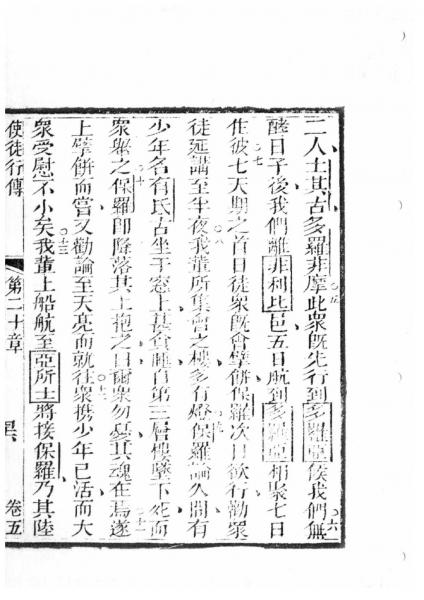 二人士其古多羅非摩此衆旣先行到多羅亞俟我們無
酵日子後我們離非利比邑五日航到多羅亞相聚七日
在彼七天期之首日徒衆旣會擘餅保羅次日欲行勸衆
徒延講至半夜我輩所集會之樓多有燈保羅論久間有
少年名有氏古坐于窓上甚貪睡自第三層樓墜下死而
衆舉之保羅卽降落其上抱之曰爾衆勿憂其魂在焉遂
上擘餅而嘗又勸論至天亮而就往衆携少年已活而大
衆受慰不小矣我輩上船航至亞所士將接保羅乃其陸
使徒行傳 第二十章 卷五